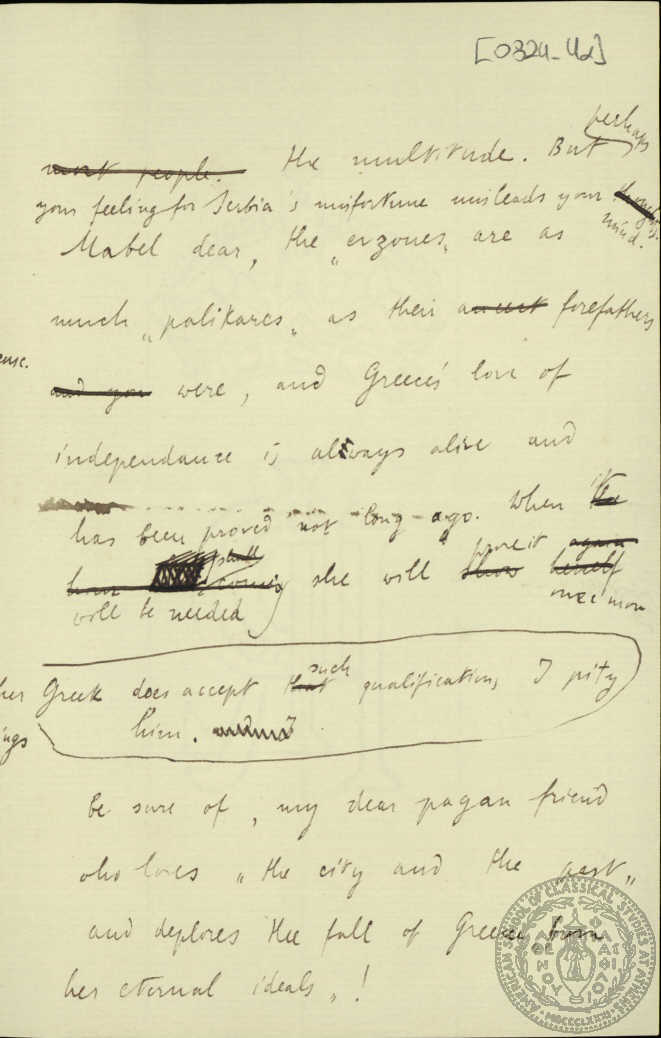 [0324-42]
perhaps
most people. the multitude. But
your feeling for Serbia's misfortune misleads your
mind.
Mabel dear, the "evzones" are as
much "palikares" as their forefathers
ense.
and you were, and Greece's love of
independance is always alive and
has been proved not long ago. When it
shall
she will show prove it herself again
will be needed
once more
her Greek does accept that such qualifications, I pity
ings him.
be sure of, my dear pagan friend
who loves "the city and the
and deplores the fall of Greece from
her eternal ideals"!
AMERICAN SCHOOL OF CLASSICAL STUDIES AT ATHENS
MDCCCLXXXI